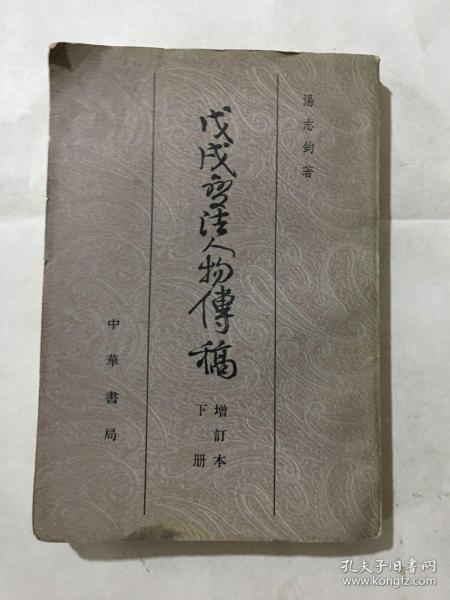 湯志鈞著
戊戌变法人物傳稿
增訂本
下册
中華書局
孔夫子旧书网
www.kongfz.com